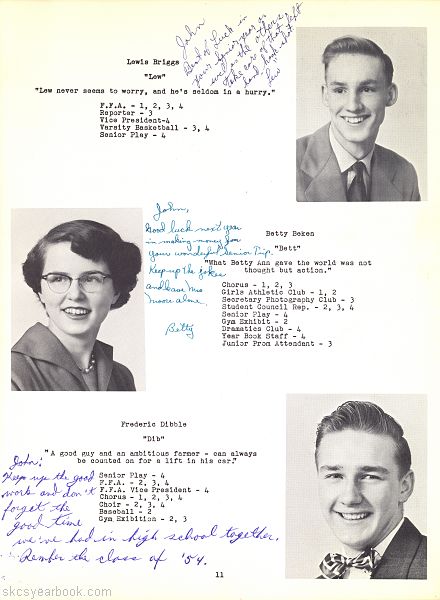 John
Best of Luck in
your Senior year as
well as the others.
Take care of that left
hand hook shot
"Lew"
Lewis Briggs
"Lew"
"Lew never seems to worry, and he's seldom in a hurry."
F.F.A. - 1, 2, 3, 4
Reporter - 3
Vice President-4
Varsity Basketball - 3, 4
Senior Play - 4
John,
Good luck next year
in making money for
your wonderful Senior Trip.
Keep up the jokes
and leave Mrs
Moore alone.
Betty
Betty Beken
"Bett"
"What Betty Ann gave the world was not
thought but action."
Chorus - 1, 2, 3
Girls Athletic Club - 1, 2
Secretary Photography Club - 3
Student Council Rep. - 2, 3, 4
Senior Play - 4
Gym Exhibit - 2
Dramatics Club - 4
Year Book Staff - 4
Junior Prom Attendant - 3
Frederic Dibble
"Dib"
"A good guy and an ambitious farmer - can always
be counted on for a lift in his car."
Senior Play - 4
F.F.A. - 2, 3, 4
F.F.A. Vice President - 4
Chorus - 1, 2, 3, 4
Choir - 2, 3, 4
Baseball - 2
Gym Exhibition - 2, 3
John:
Keep up the good
work and don't
forget the
good time
we've had in high school together.
Rember the class of '54.
11
skcsyearbook.com